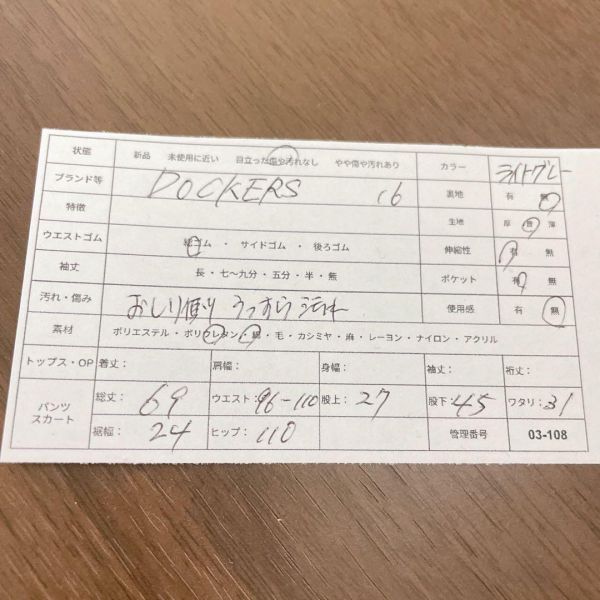 状態 新品 未使用に近い 目立った傷や汚れなし やや傷や汚れあり カラー ライトグレー
ブランド等 DOCKERS 16 裏地 有 無
特徴 生地 厚 普 薄
ウエストゴム 総ゴム ・ サイドゴム ・ 後ろゴム 伸縮性 有 無
袖丈 長 ・ 七〜九分 ・ 五分 ・ 半 ・ 無 ポケット 有 無
汚れ・傷み おしり側 うっすら汚れ 使用感 有 無
素材 ポリエステル・ポリウレタン・綿・毛・カシミヤ・麻・レーヨン・ナイロン・アクリル
トップス・OP 着丈: 肩幅: 身幅: 袖丈: 裄丈:
パンツ スカート 総丈: 69 ウエスト: 96-110 股上: 27 股下: 45 ワタリ: 31
裾幅: 24 ヒップ: 110 管理番号 03-108